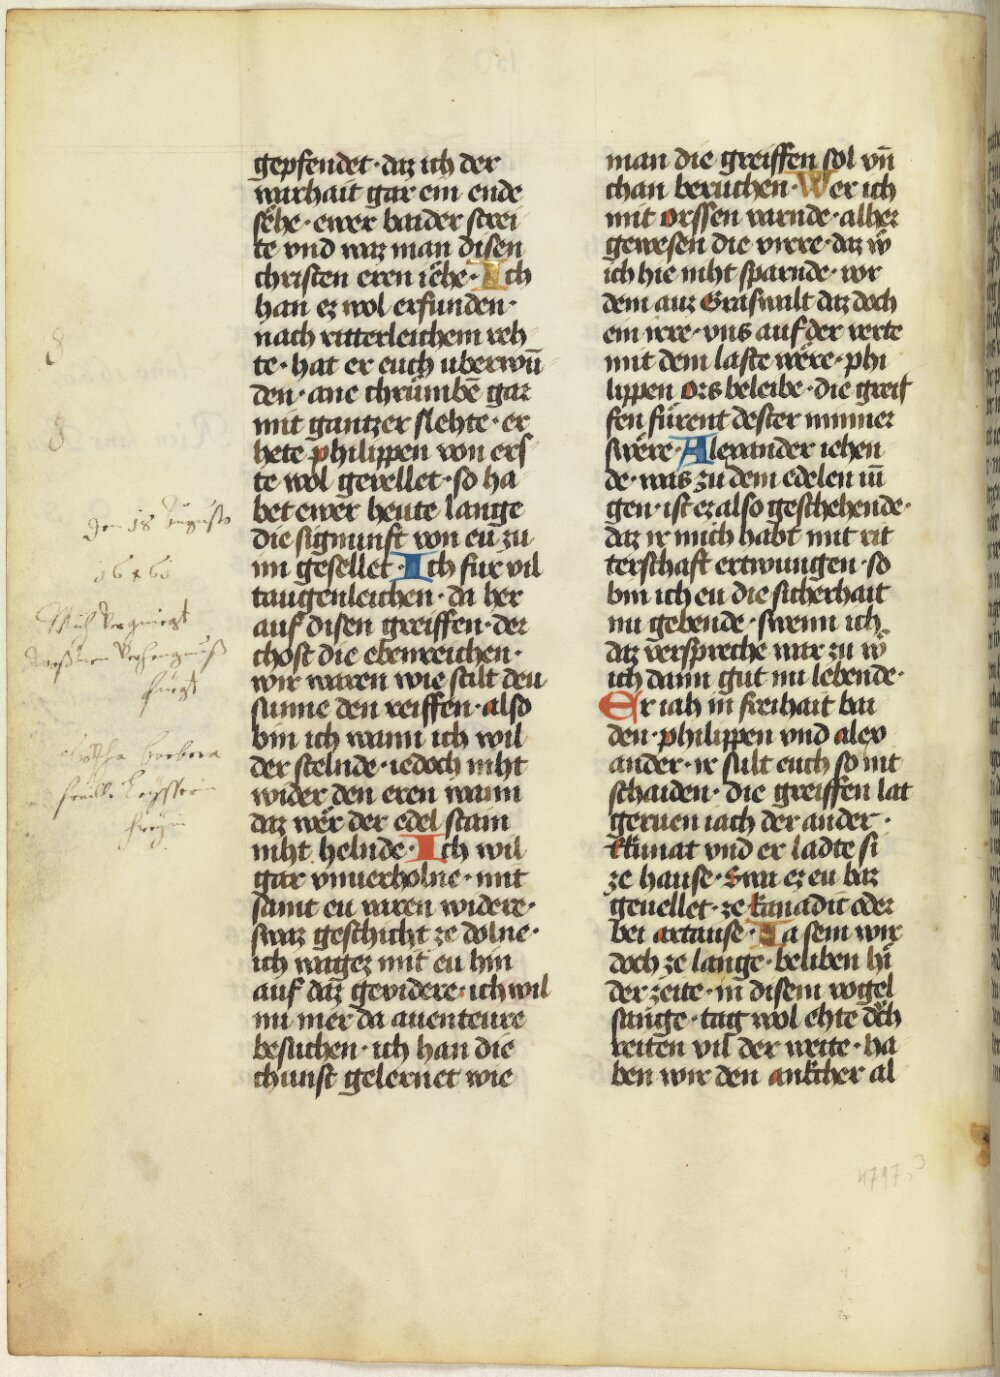 gepfendet · daz ich der
warhait gar ein ende
sehe · ewer baider strei
te vnd waz man disen
christen eren iehe · Ich
han ez wol erfunden ·
nach ritterleichem reh
te · hat er euch uberwū
den · ane chrümbē gar
mit gantzer slehte · er
hete philippen von ers
te wol gevellet · so ha
bet ewer heute lange
die sigmunft von eu zu
im gesellet · Ich für vil
taugenleichen · da her
auf disen greiffen · der
chost die ebenreichen ·
wir waren wie stilt deu
sunne den reiffen · also
bin ich wann ich wil
der stelnde · iedoch niht
wider den eren wann
daz wer der edel stain
niht helnde · Ich wil
gar vnuerholne · mit
samt eu varen widere ·
swaz geschicht ze dolne ·
ich wagez mit eu hin
auf daz gevidere · ich wil
nu mer da auenteure
besuchen · ich han die
chunst gelernet wie
man die greiffen sol vn̄
chan beruchen · Wer ich
mit orssen varnde · alher
gewesen die virre · daz w
ich hie niht sparnde · vor
dem auz Graswalt daz doch
ein irre · vns auf der verte
mit dem laste were · phi
lippen ors beleibe · die greif
fen fürent dester minner
swere · Alexander iehen
de · was zu dem edelen iū
gen · ist ez also geschehende ·
daz ir mich habt mit rit
terschaft ertwungen · so
bin ich eu die sicherhait
nu gebende · swenn ich
daz verspreche war zu w
ich dann gut nu lebende ·
Er iah in freihait bai
den · philippen vnd alex
ander · ir sult euch so nit
schaiden · die greiffen lat
geruen iach der ander ·
Ekunat vnd er ladte si
ze hause · Swa ez eu baz
geuellet · ze kanadit oder
bei artause · Ia sein wir
doch ze lange · beliben hi
der zeite · in disem vogel
sange · tag wol ehte doch
reiten vil der weite · ha
ben wir den ankcher al
8
8
den 18 Augusti
4797,3